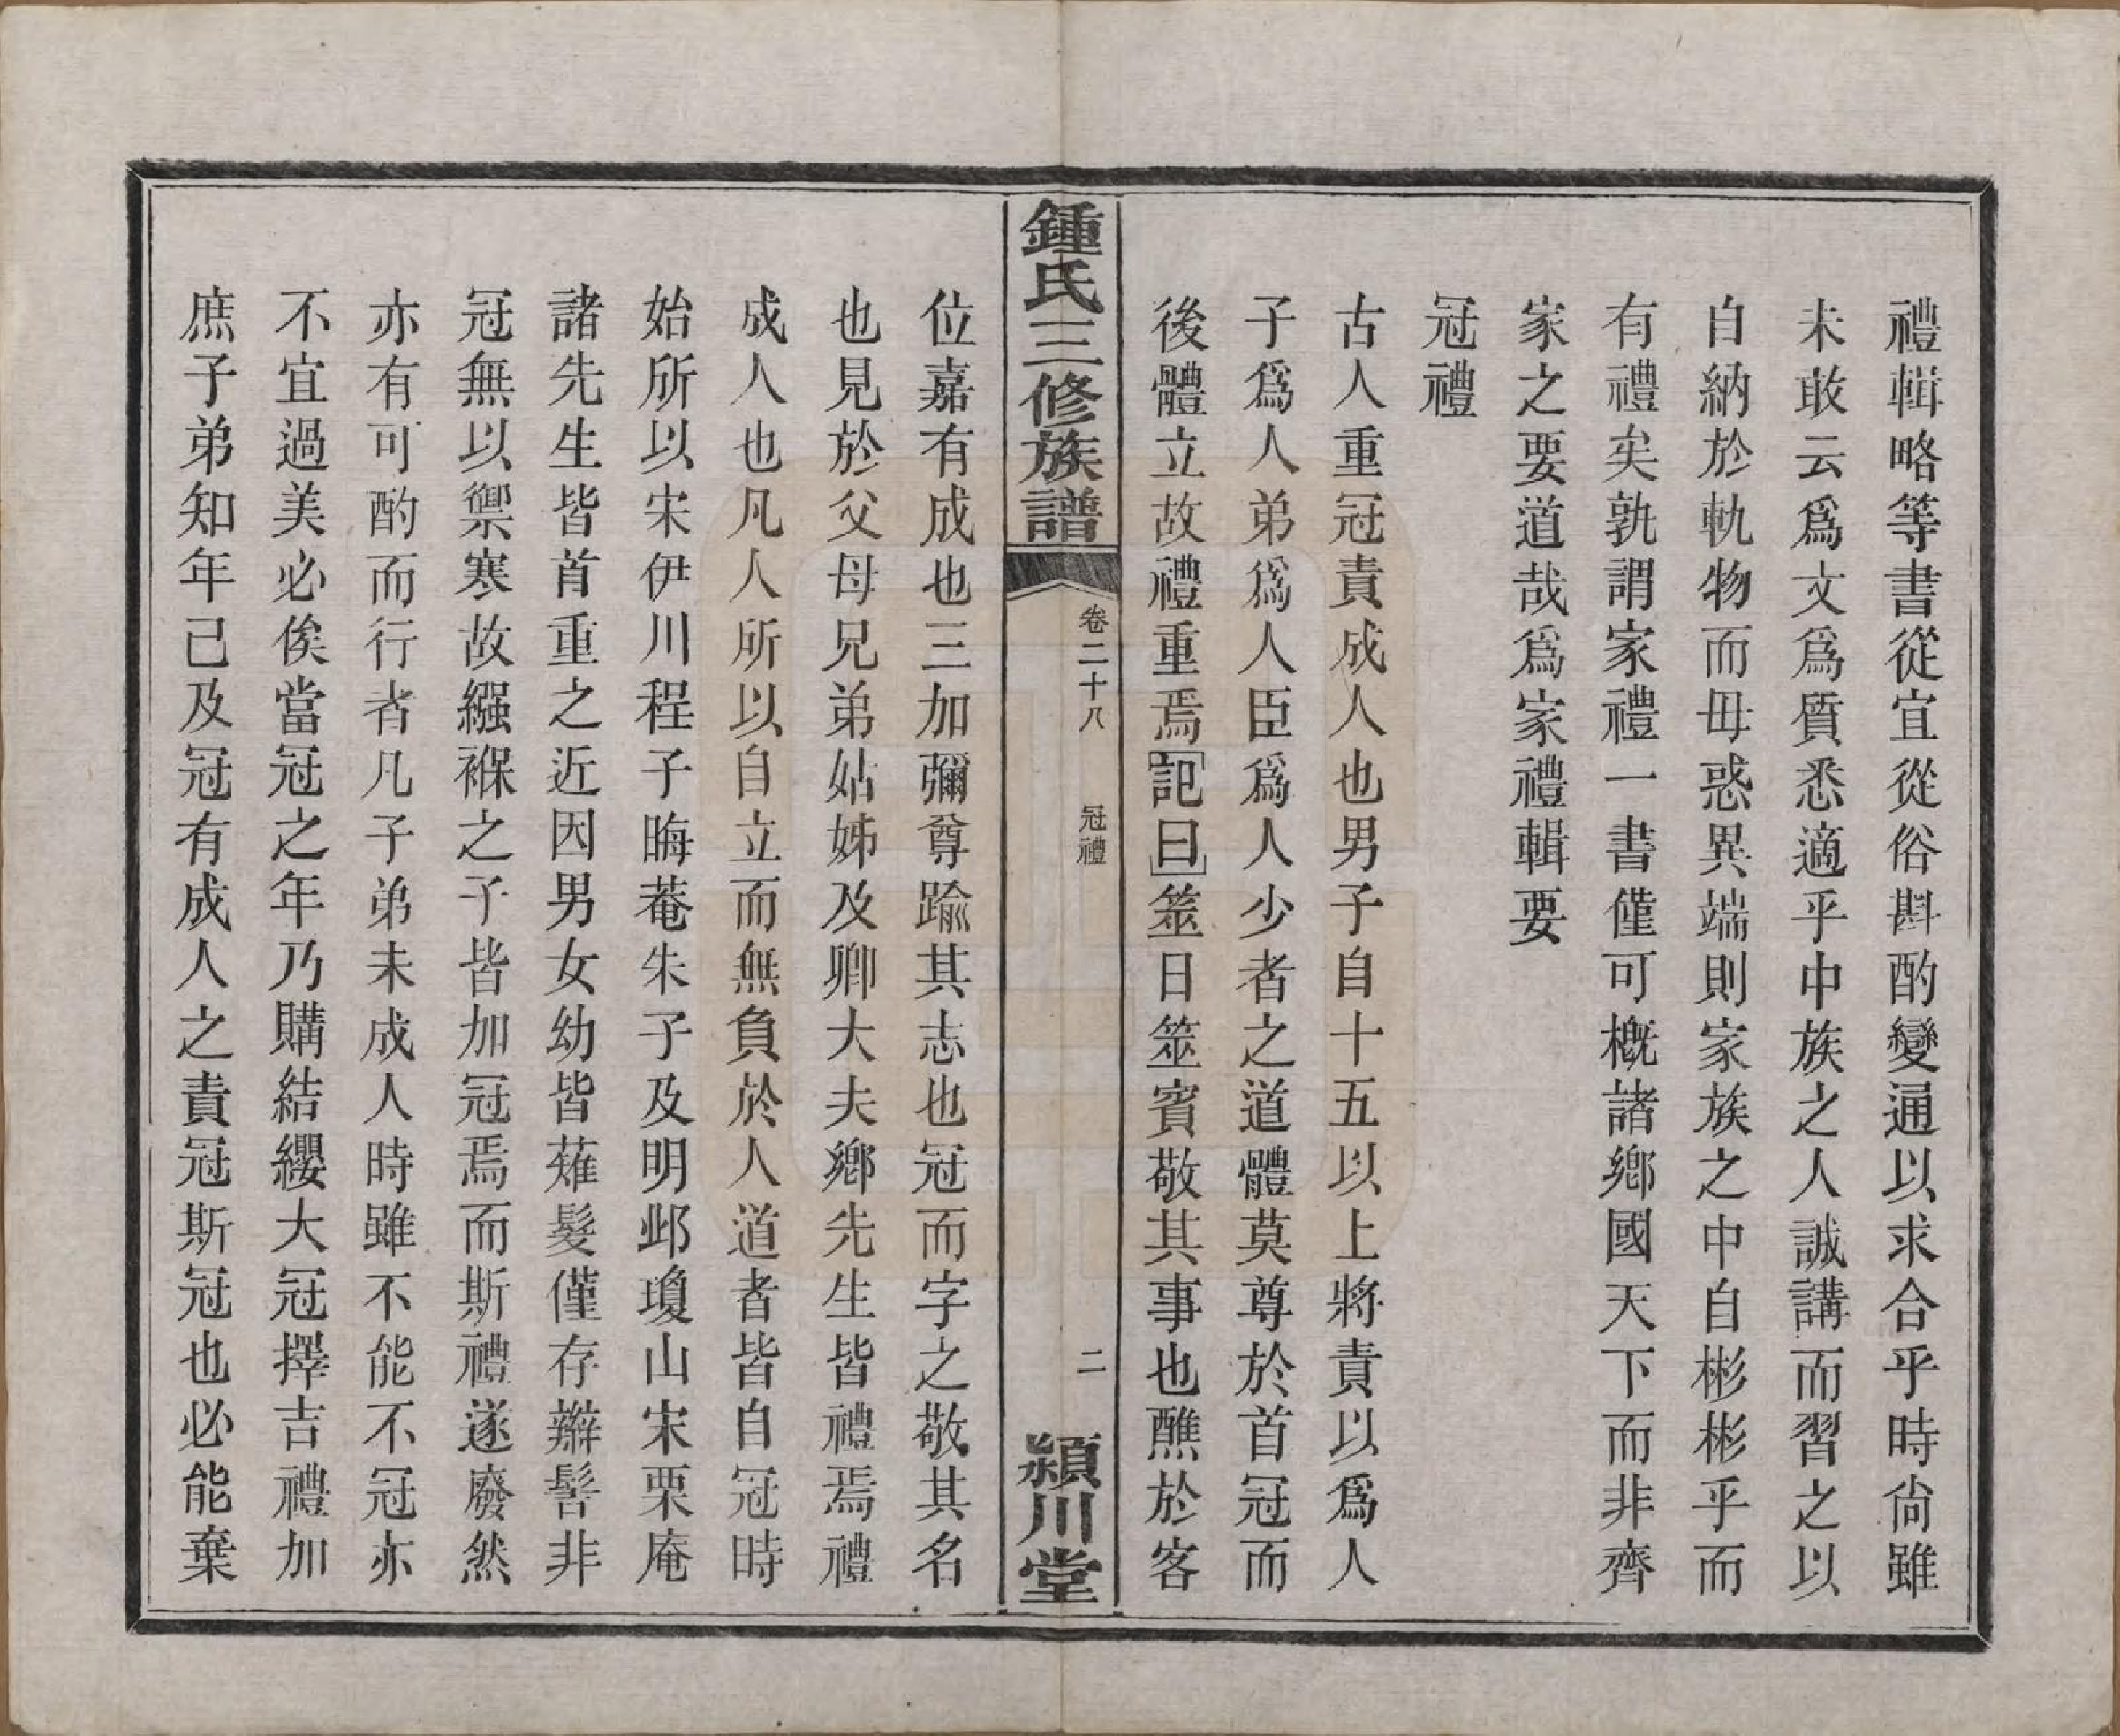 禮輯略等書從宜從俗斟酌變通以求合乎時尙雖
未敢云爲文爲質悉適乎中族之人誠講而習之以
自納於軌物而毋惑異端則家族之中自彬彬乎而
有禮矣孰謂家禮一書僅可槪諸鄉國天下而非齊
家之要道哉爲家禮輯要
冠禮
古人重冠責成人也男子自十五以上將責以爲人
子爲人弟爲人臣爲人少者之道體莫尊於首冠而
後體立故禮重焉記曰筮日筮賓敬其事也醮於客
鍾氏三修族譜
卷二十八
冠禮
二
潁川堂
位嘉有成也三加彌尊踰其志也冠而字之敬其名
也見於父母兄弟姑姊及卿大夫鄉先生皆禮焉禮
成人也凡人所以自立而無負於人道者皆自冠時
始所以宋伊川程子晦菴朱子及明邱瓊山宋栗庵
諸先生皆首重之近因男女幼皆薙髮僅存辮髻非
冠無以禦寒故繈褓之子皆加冠焉而斯禮遂廢然
亦有可酌而行者凡子弟未成人時雖不能不冠亦
不宜過美必俟當冠之年乃購結纓大冠擇吉禮加
庶子弟知年已及冠有成人之責冠斯冠也必能棄